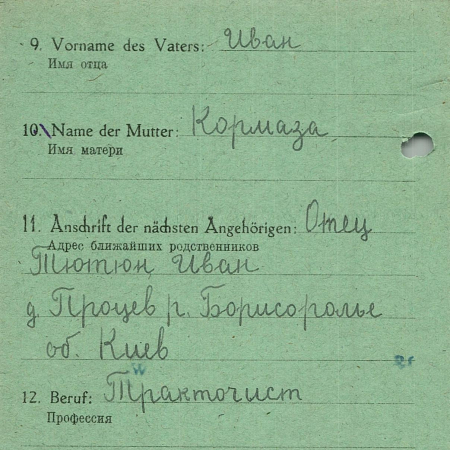 9. Vorname des Vaters: Иван
Имя отца
10. Name der Mutter: Кормаза
Имя матери
11. Anschrift der nächsten Angehörigen: Отец
Адрес ближайших родственников
Тютюн Иван
д Процев р. Борисоролье
об. Киев
12. Beruf: Тракточист
Профессия